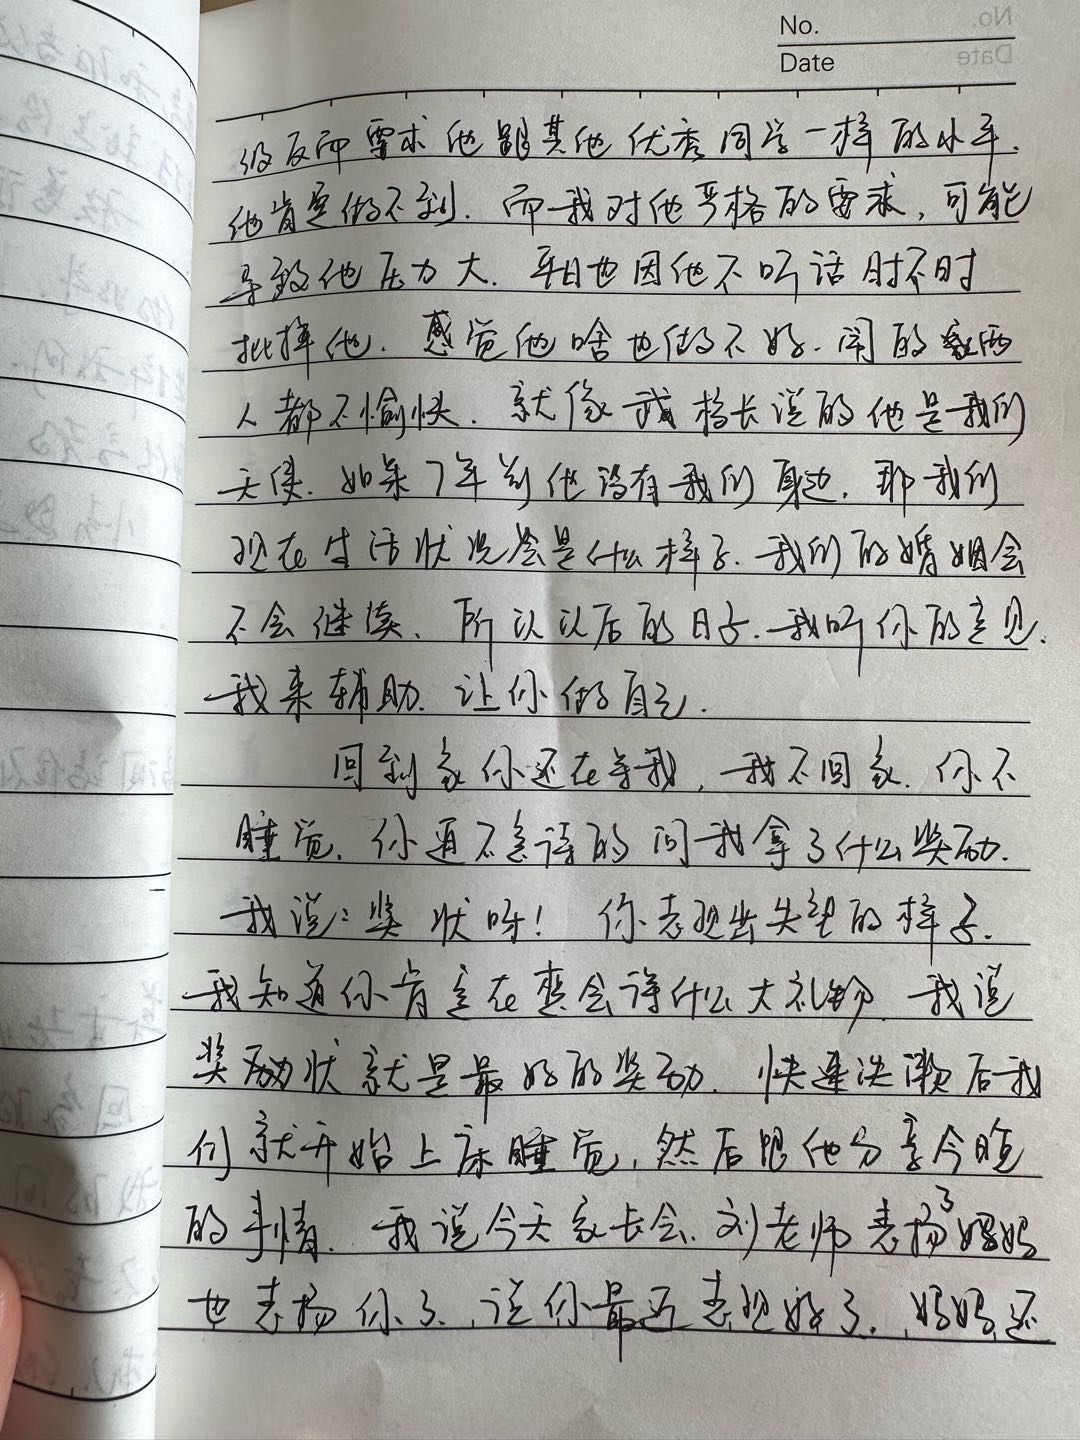 No.
Date
级反而要求他跟其他优秀同学一样的水平.
他肯定做不到. 而我对他严格的要求, 可能
导致他压力大. 平日也因他不听话时不时
批评他. 感觉他啥也做不好. 闹的家两
人都不愉快. 就像 杨长说的他是我们
天使. 如果7年前他没有我们身边. 那我们
现在生活状况会是什么样子. 我们的婚姻会
不会继续. 所以以后的日子. 我听你的意见.
我来辅助. 让你做自己.
回到家你还在等我, 我不回家. 你不
睡觉. 你迫不急待的问我拿了什么奖励.
我说: 奖状呀! 你表现出失望的样子.
我知道你肯定在想会得什么大礼物. 我说
奖励状就是最好的奖励. 快速洗漱后我
们就开始上床睡觉, 然后跟他分享今晚
的事情. 我说今天家长会. 刘老师表扬了妈妈
也表扬你了, 说你最近表现好了. 妈妈还